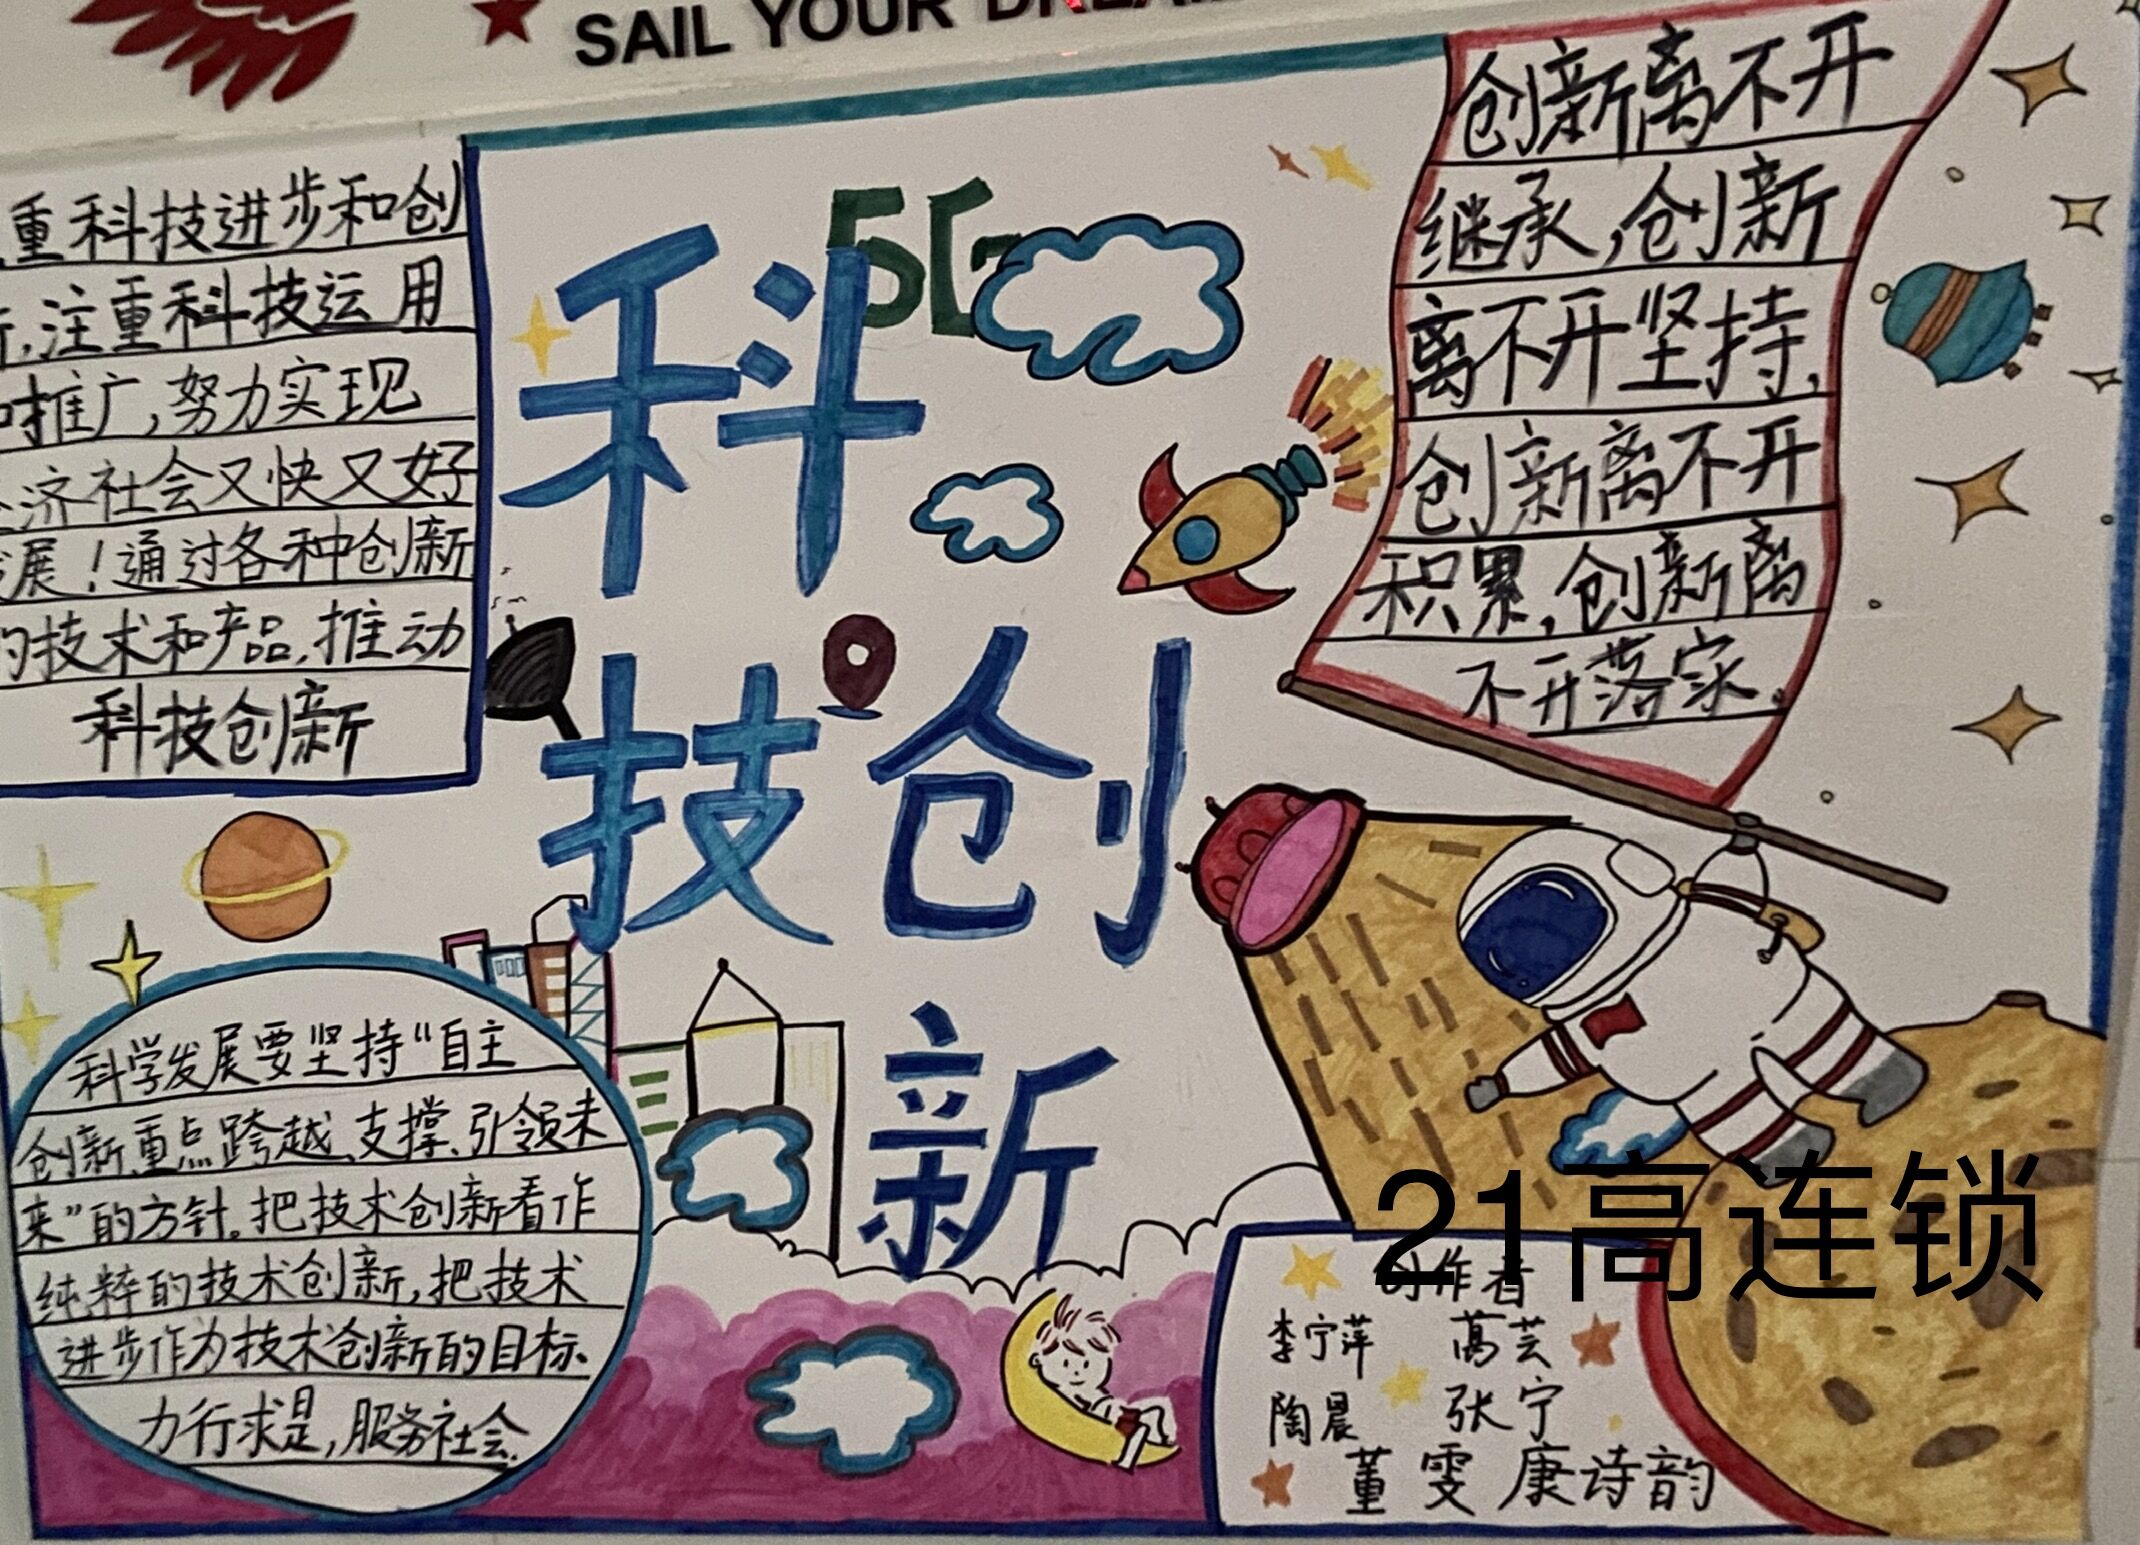 SAIL YOUR DREAM
重科技进步和创
新,注重科技运用
和推广,努力实现
经济社会又快又好
发展!通过各种创新
的技术和产品,推动
科技创新
5G
科
技创
新
创新离不开
继承,创新
离不开坚持,
创新离不开
积累,创新离
不开落实.
科学发展要坚持“自主
创新、重点跨越、支撑、引领未
来”的方针。把技术创新看作
纯粹的技术创新,把技术
进步作为技术创新的目标、
力行求是,服务社会.
21高连锁
创作者
李宁萍 蒿芸
陶晨 张宁
董雯 康诗韵